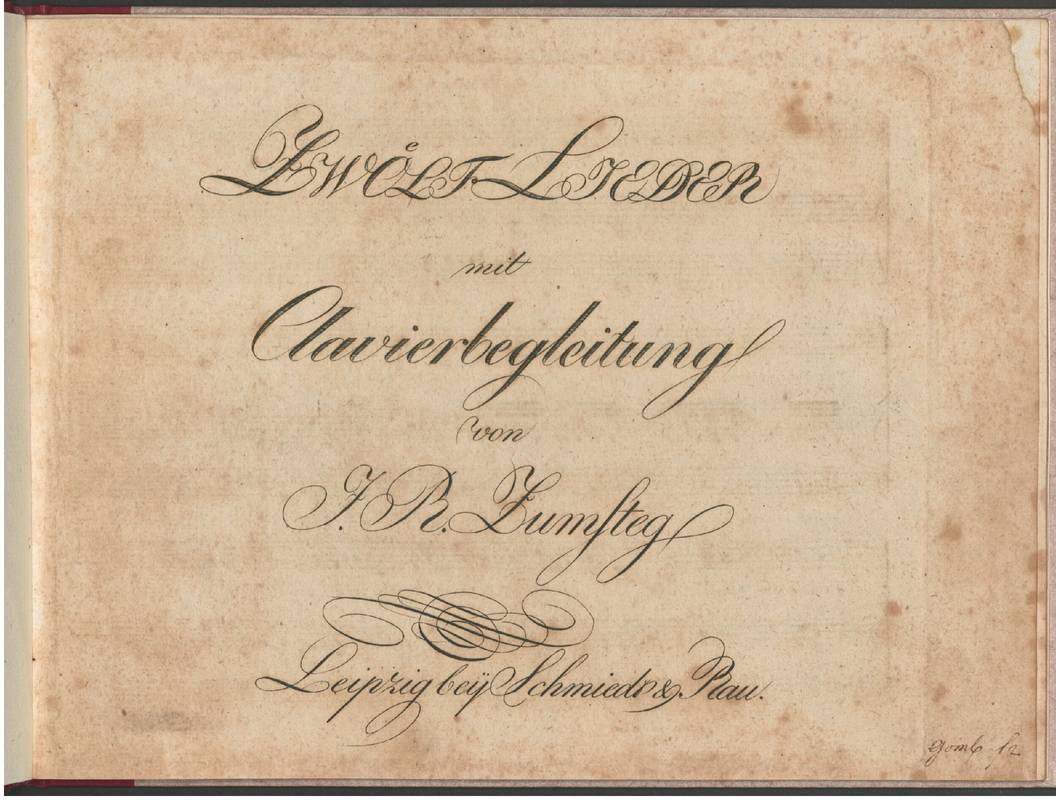 ZWÖLF LIEDER
mit
Clavierbegleitung
von
J. R. Zumsteg
Leipzig beÿ Schmiedt & Rau.